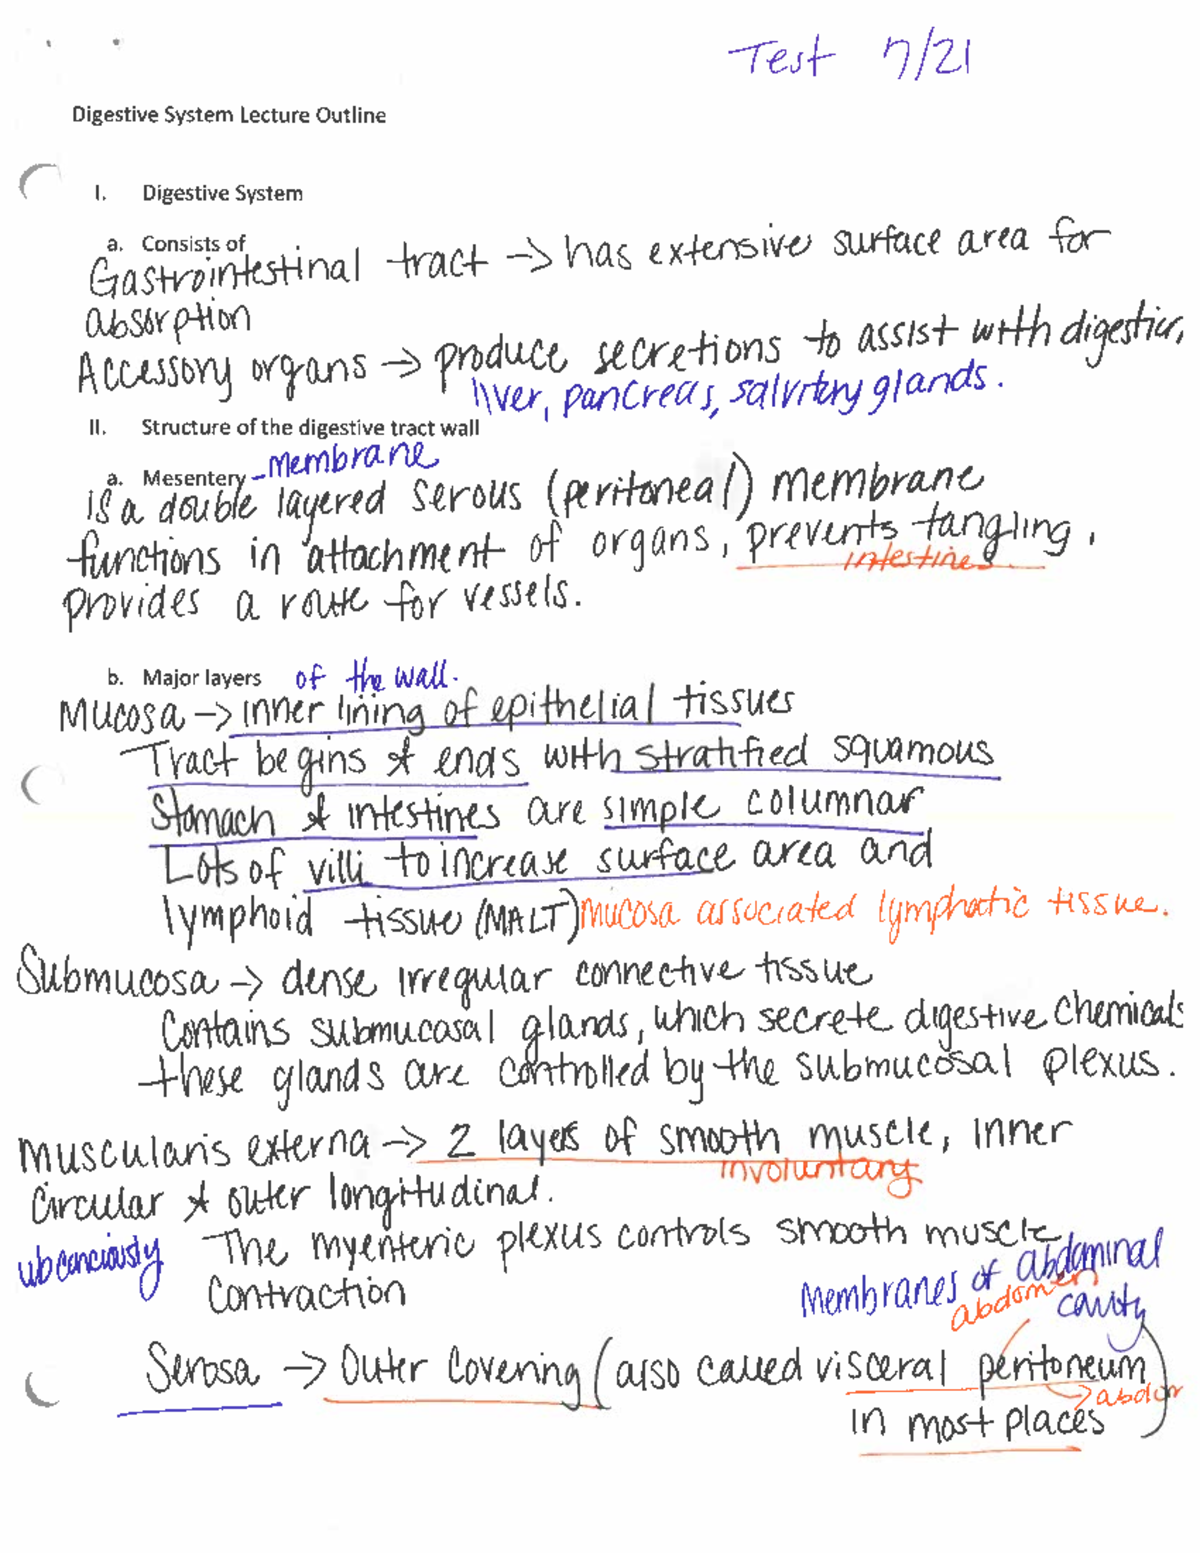 Test 7/21
Digestive System Lecture Outline
I. Digestive System
a. Consists of
Gastrointestinal tract → has extensive surface area for
absorption
Accessory organs → produce secretions to assist with digestion,
liver, pancreas, salvitery glands.
II. Structure of the digestive tract wall
a. Mesentery - Membrane
is a double layered serous (peritoneal) membrane
functions in attachment of organs, prevents tangling,
intestines
provides a route for vessels.
b. Major layers of the wall.
Mucosa → inner lining of epithelial tissues
Tract begins & ends with stratified squamous
Stomach & intestines are simple columnar
Lots of villi to increase surface area and
lymphoid tissue (MALT) Mucosa associated lymphatic tissue.
Submucosa → dense irregular connective tissue
Contains submucosal glands, which secrete digestive chemicals
these glands are controlled by the submucosal plexus.
Muscularis externa → 2 layers of smooth muscle, inner
involuntary
circular & outer longitudinal.
ubconciously The myenteric plexus controls smooth muscle
contraction
Membranes of abdominal
abdomen cavity
Serosa → Outer Covering (also called visceral peritoneum
abdor
in most places)